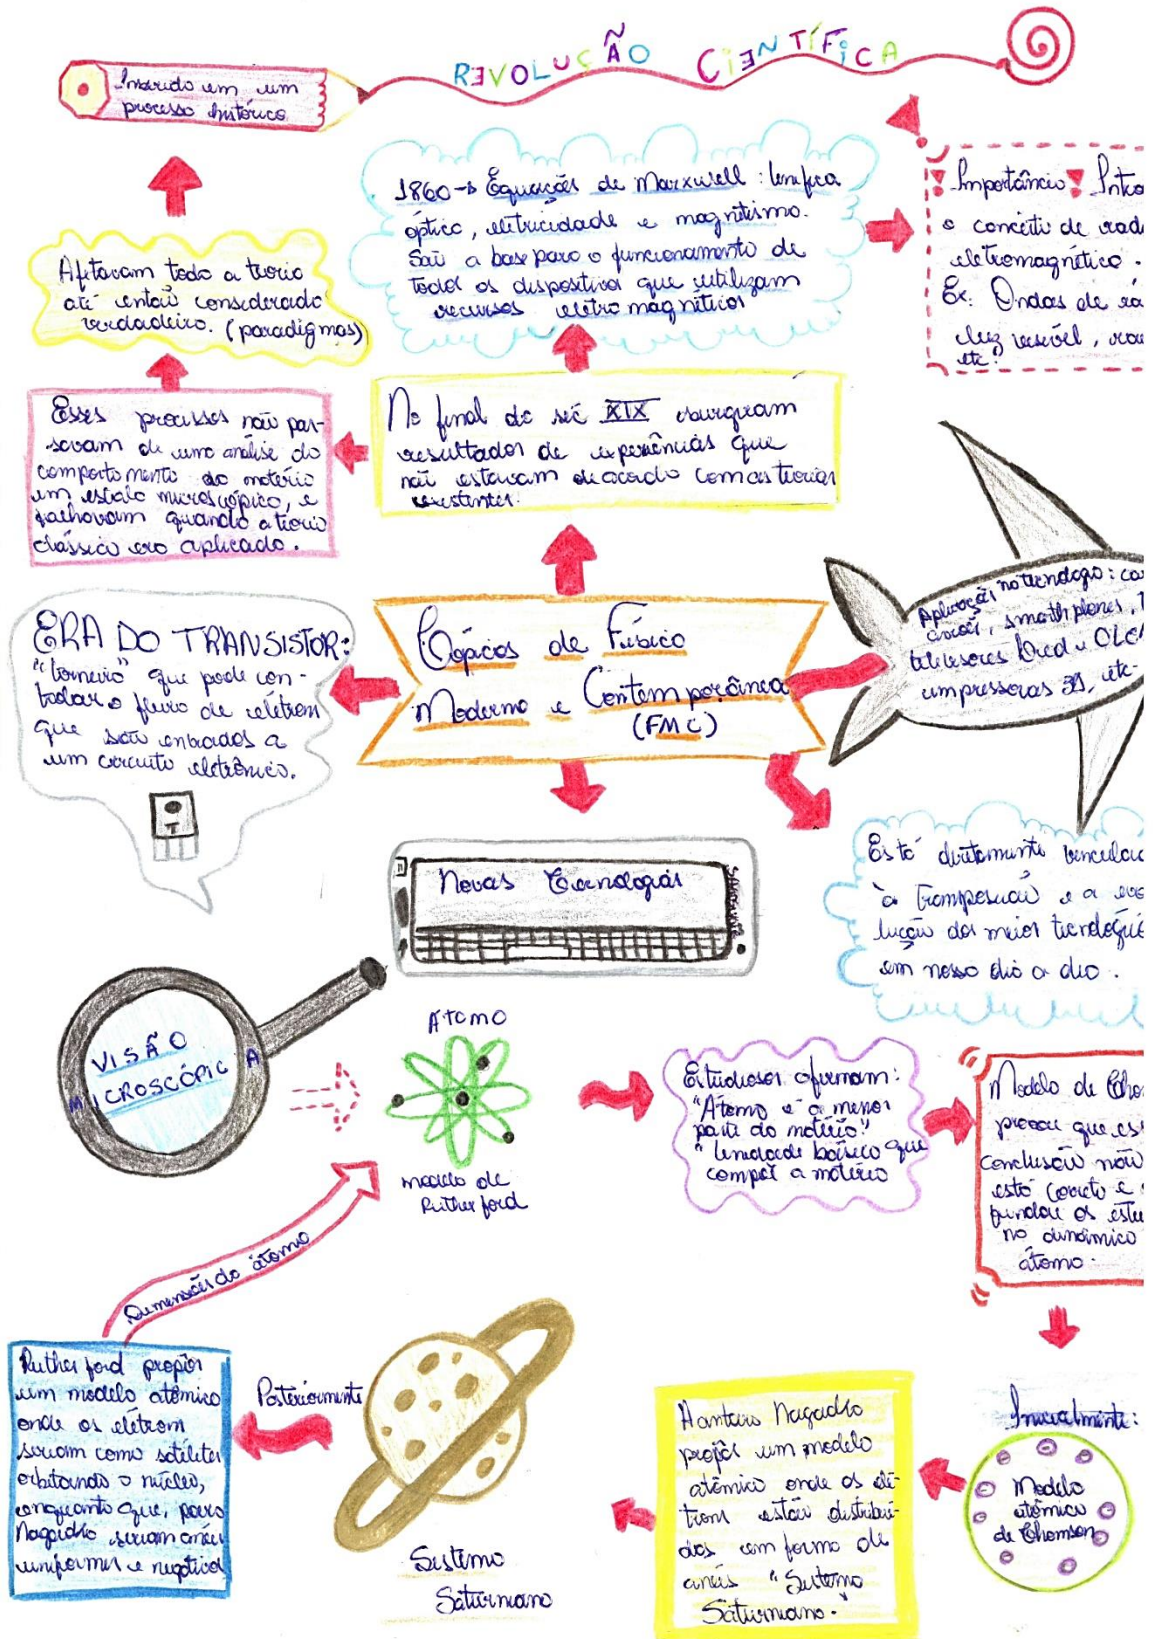 REVOLUÇÃO CIENTÍFICA
Inserido em um
processo histórico
1860 → Equações de Marxwell: Unifica
óptica, eletricidade e magnitismo.
São a base para o funcionamento de
todos os dispositivos que utilizam
recursos eletromagnéticos
Importância Intro
o conceito de rad
eletromagnético.
Ex: Ondas de rá
luz visível,
etc!
Afetavam toda a teoria
até então considerada
verdadeira. (paradigmas)
Esses processos não pas-
savam de uma análise do
comportamento da matéria
em escala microscópica, e
falhavam quando a teoria
clássica era aplicada.
No final do séc XIX surgiram
resultados de experiências que
não estavam de acordo com as teorias
existentes.
ERA DO TRANSISTOR:
"torneira" que pode con-
trolar o fluxo de elétrons
que são enviados a
um circuito eletrônico.
T
Tópicos de Física
Moderna e Contemporânea
(FMC)
Aplicação na tecnologia:
smarth phones,
televisores Lred e OLE
impressoras 3D, etc.
Novas Tecnologias
Está diretamente vinculad
à transposição e a evo
lução das meios tecnologia
em nosso dia a dia.
VISÃO
MICROSCÓPICA
ÁTOMO
modelo de
Ruther ford
Estudiosos afirmam:
"Átomo é a menor
parte da matéria"
"Unidade básica que
compõe a matéria
Modelo de Tho
provou que es
conclusão não
está correta e
fundou os estu
na dinâmica
átomo.
Dimensões do átomo
Ruther ford propôs
um modelo atômico
onde os elétrons
seriam como satélites
orbitando o núcleo,
enquanto que, para
Nagaoka seriam anéis
uniformes e negativos
Posteriormente
Sistema
Saturniano
Hantaro Nagaoka
propôs um modelo
atômico onde os elé-
trons estão distribuí-
dos em forma de
anéis "Sistema
Saturniano."
Inicialmente:
Modelo
atômico
de Thomson